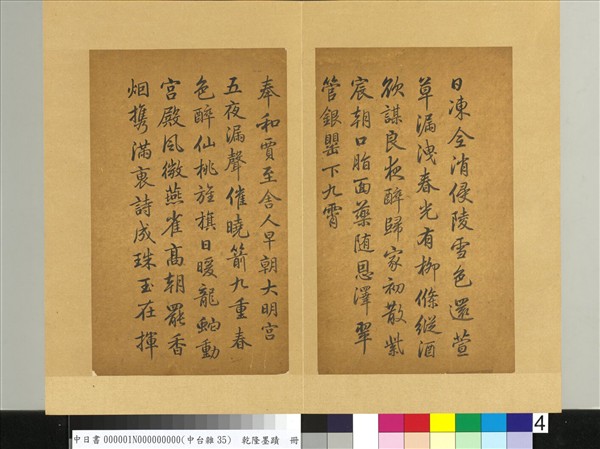 日凍全消侵陵雪色還萱
草漏洩春光有柳條縱酒
欲謀良夜醉歸家初散紫
宸朝口脂面藥随恩澤翠
管銀罌下九霄
奉和賈至舍人早朝大明宮
五夜漏聲催曉箭九重春
色醉仙桃旌旗日暖龍虵動
宮殿風微燕雀高朝罷香
烟携滿詩成珠玉在揮
中日書 000001N000000000(中台雜 35) 乾隆墨蹟 冊
4